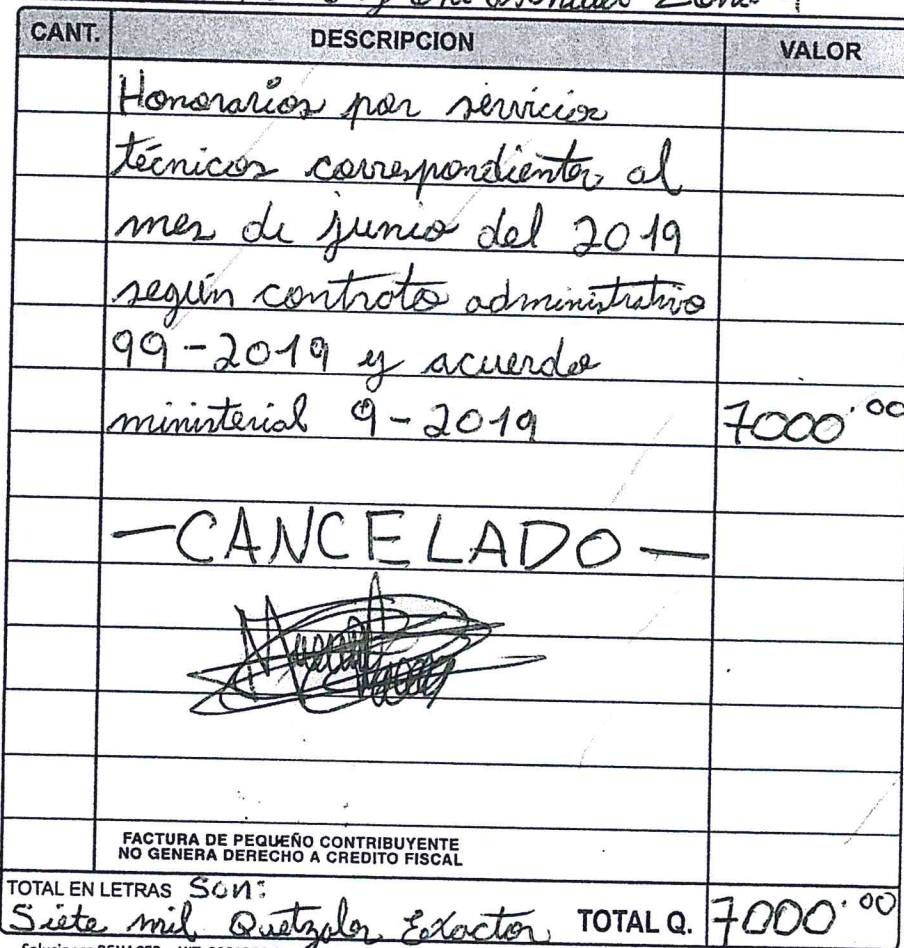 Zona 1
CANT. DESCRIPCION VALOR
Honorarios por servicios
técnicos correspondientes al
mes de junio del 2019
según contrato administrativo
99-2019 y acuerdo
ministerial 9-2019 7000.00
-CANCELADO-
FACTURA DE PEQUEÑO CONTRIBUYENTE
NO GENERA DERECHO A CREDITO FISCAL
TOTAL EN LETRAS Son:
Siete mil Quetzales Exactos TOTAL Q. 7000.00